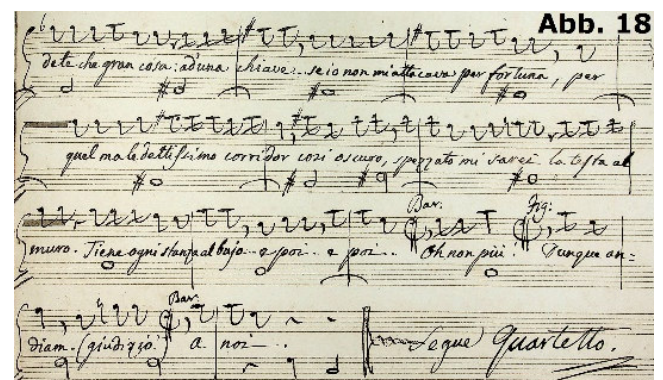 Abb. 18
dete che gran cosa: ad una chiave... se io non m'attacava per fortuna, per
quel maledettissimo corridor così oscuro, spezzato mi sarei la testa al
Bar: Fig:
muro. Tiene ogni stanza al bujo.. e poi... e poi... Oh non più! Dunque an=
Bar:
diam. (giudizio!) a noi—..
Segue Quartetto.